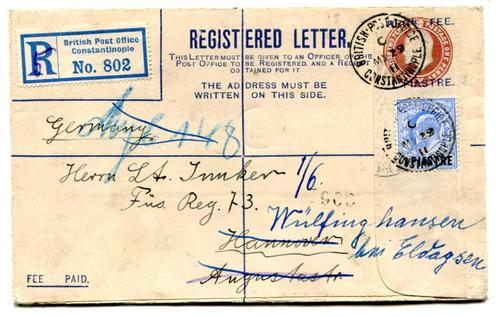 British Post Office
Constantinople
R
No. 802
REGISTERED LETTER.
THIS LETTER MUST BE GIVEN TO AN OFFICER OF THE
POST OFFICE TO BE REGISTERED, AND A RECEIPT
OBTAINED FOR IT
THE ADDRESS MUST BE
WRITTEN ON THIS SIDE.
FEE.
PIASTRE.
BRITISH POST OFFICE
CONSTANTINOPLE
C
PIASTRE
Germany
148
Herrn Lt. Junker
1/6
Füs. Reg. 73.
Wülfinghausen
Hannover
bei Eldagsen
Augustastr.
FEE PAID.